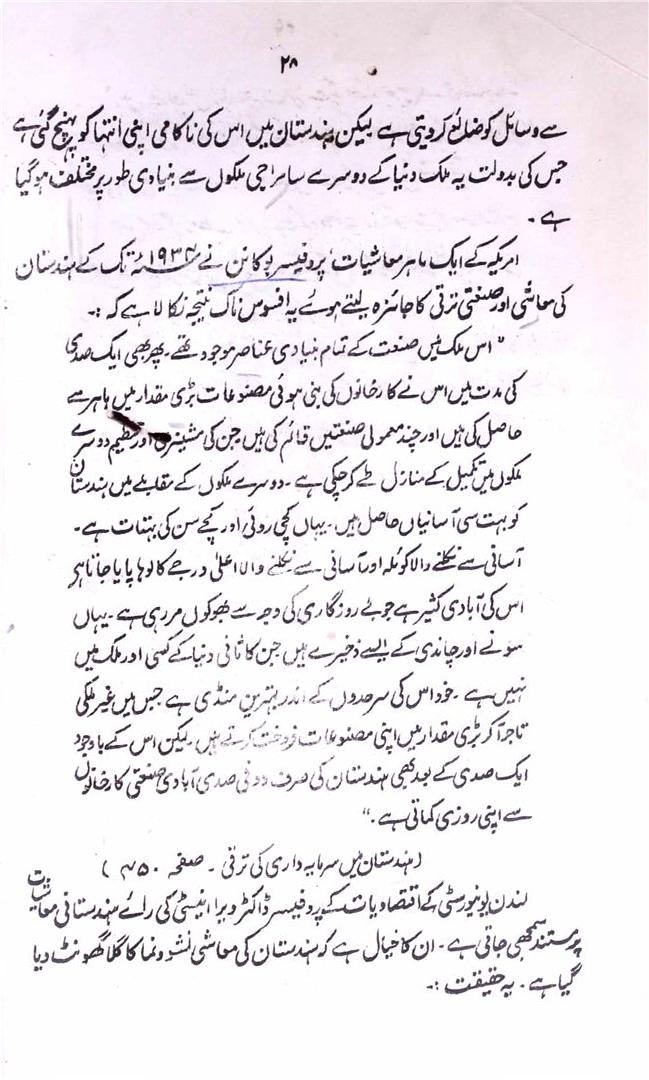 ۲۸
سے وسائل کو ضائع کر دیتی ہے لیکن ہندستان میں اس کی ناکامی اپنی انتہا کو پہنچ گئی ہے
جس کی بدولت یہ ملک دنیا کے دوسرے سامراجی ملکوں سے بنیادی طور پر مختلف ہو گیا
ہے۔
امریکہ کے ایک ماہر معاشیات، پروفیسر بوکانن نے ۱۹۳۴ء تک کے ہندستان
کی معاشی اور صنعتی ترقی کا جائزہ لیتے ہوئے یہ افسوس ناک نتیجہ نکالا ہے کہ :۔
"اس ملک میں صنعت کے تمام بنیادی عناصر موجود تھے۔ پھر بھی ایک صدی
کی مدت میں اس نے کارخانوں کی بنی ہوئی مصنوعات بڑی مقدار میں باہر سے
حاصل کی ہیں اور چند معمولی صنعتیں قائم کی ہیں جن کی مشینری اور تنظیم دوسرے
ملکوں میں تکمیل کے منازل طے کر چکی ہے۔ دوسرے ملکوں کے مقابلے میں ہندستان
کو بہت سی آسانیاں حاصل ہیں۔ یہاں کچی روئی اور کچے سن کی بہتات ہے۔
آسانی سے نکلنے والا کوئلہ اور آسانی سے نکلنے والا اعلیٰ درجے کا لوہا پایا جاتا ہے
اس کی آبادی کثیر ہے جو بے روزگاری کی وجہ سے بھوکوں مر رہی ہے۔ یہاں
سونے اور چاندی کے ایسے ذخیرے ہیں جن کا ثانی دنیا کے کسی اور ملک میں
نہیں ہے۔ خود اس کی سرحدوں کے اندر بہترین منڈی ہے جس میں غیر ملکی
تاجر آ کر بڑی مقدار میں اپنی مصنوعات فروخت کرتے ہیں۔ لیکن اس کے باوجود
ایک صدی کے بعد بھی ہندستان کی صرف دو فی صدی آبادی صنعتی کارخانوں
سے اپنی روزی کماتی ہے۔"
(ہندستان میں سرمایہ داری کی ترقی۔ صفحہ ۴۵۰)
لندن یونیورسٹی کے اقتصادیات کے پروفیسر ڈاکٹر ویرا اینسٹی کی رائے ہندستانی معاشیات
پر مستند سمجھی جاتی ہے۔ ان کا خیال ہے کہ ہندستان کی معاشی نشو و نما کا گلا گھونٹ دیا
گیا ہے۔ یہ حقیقت :۔